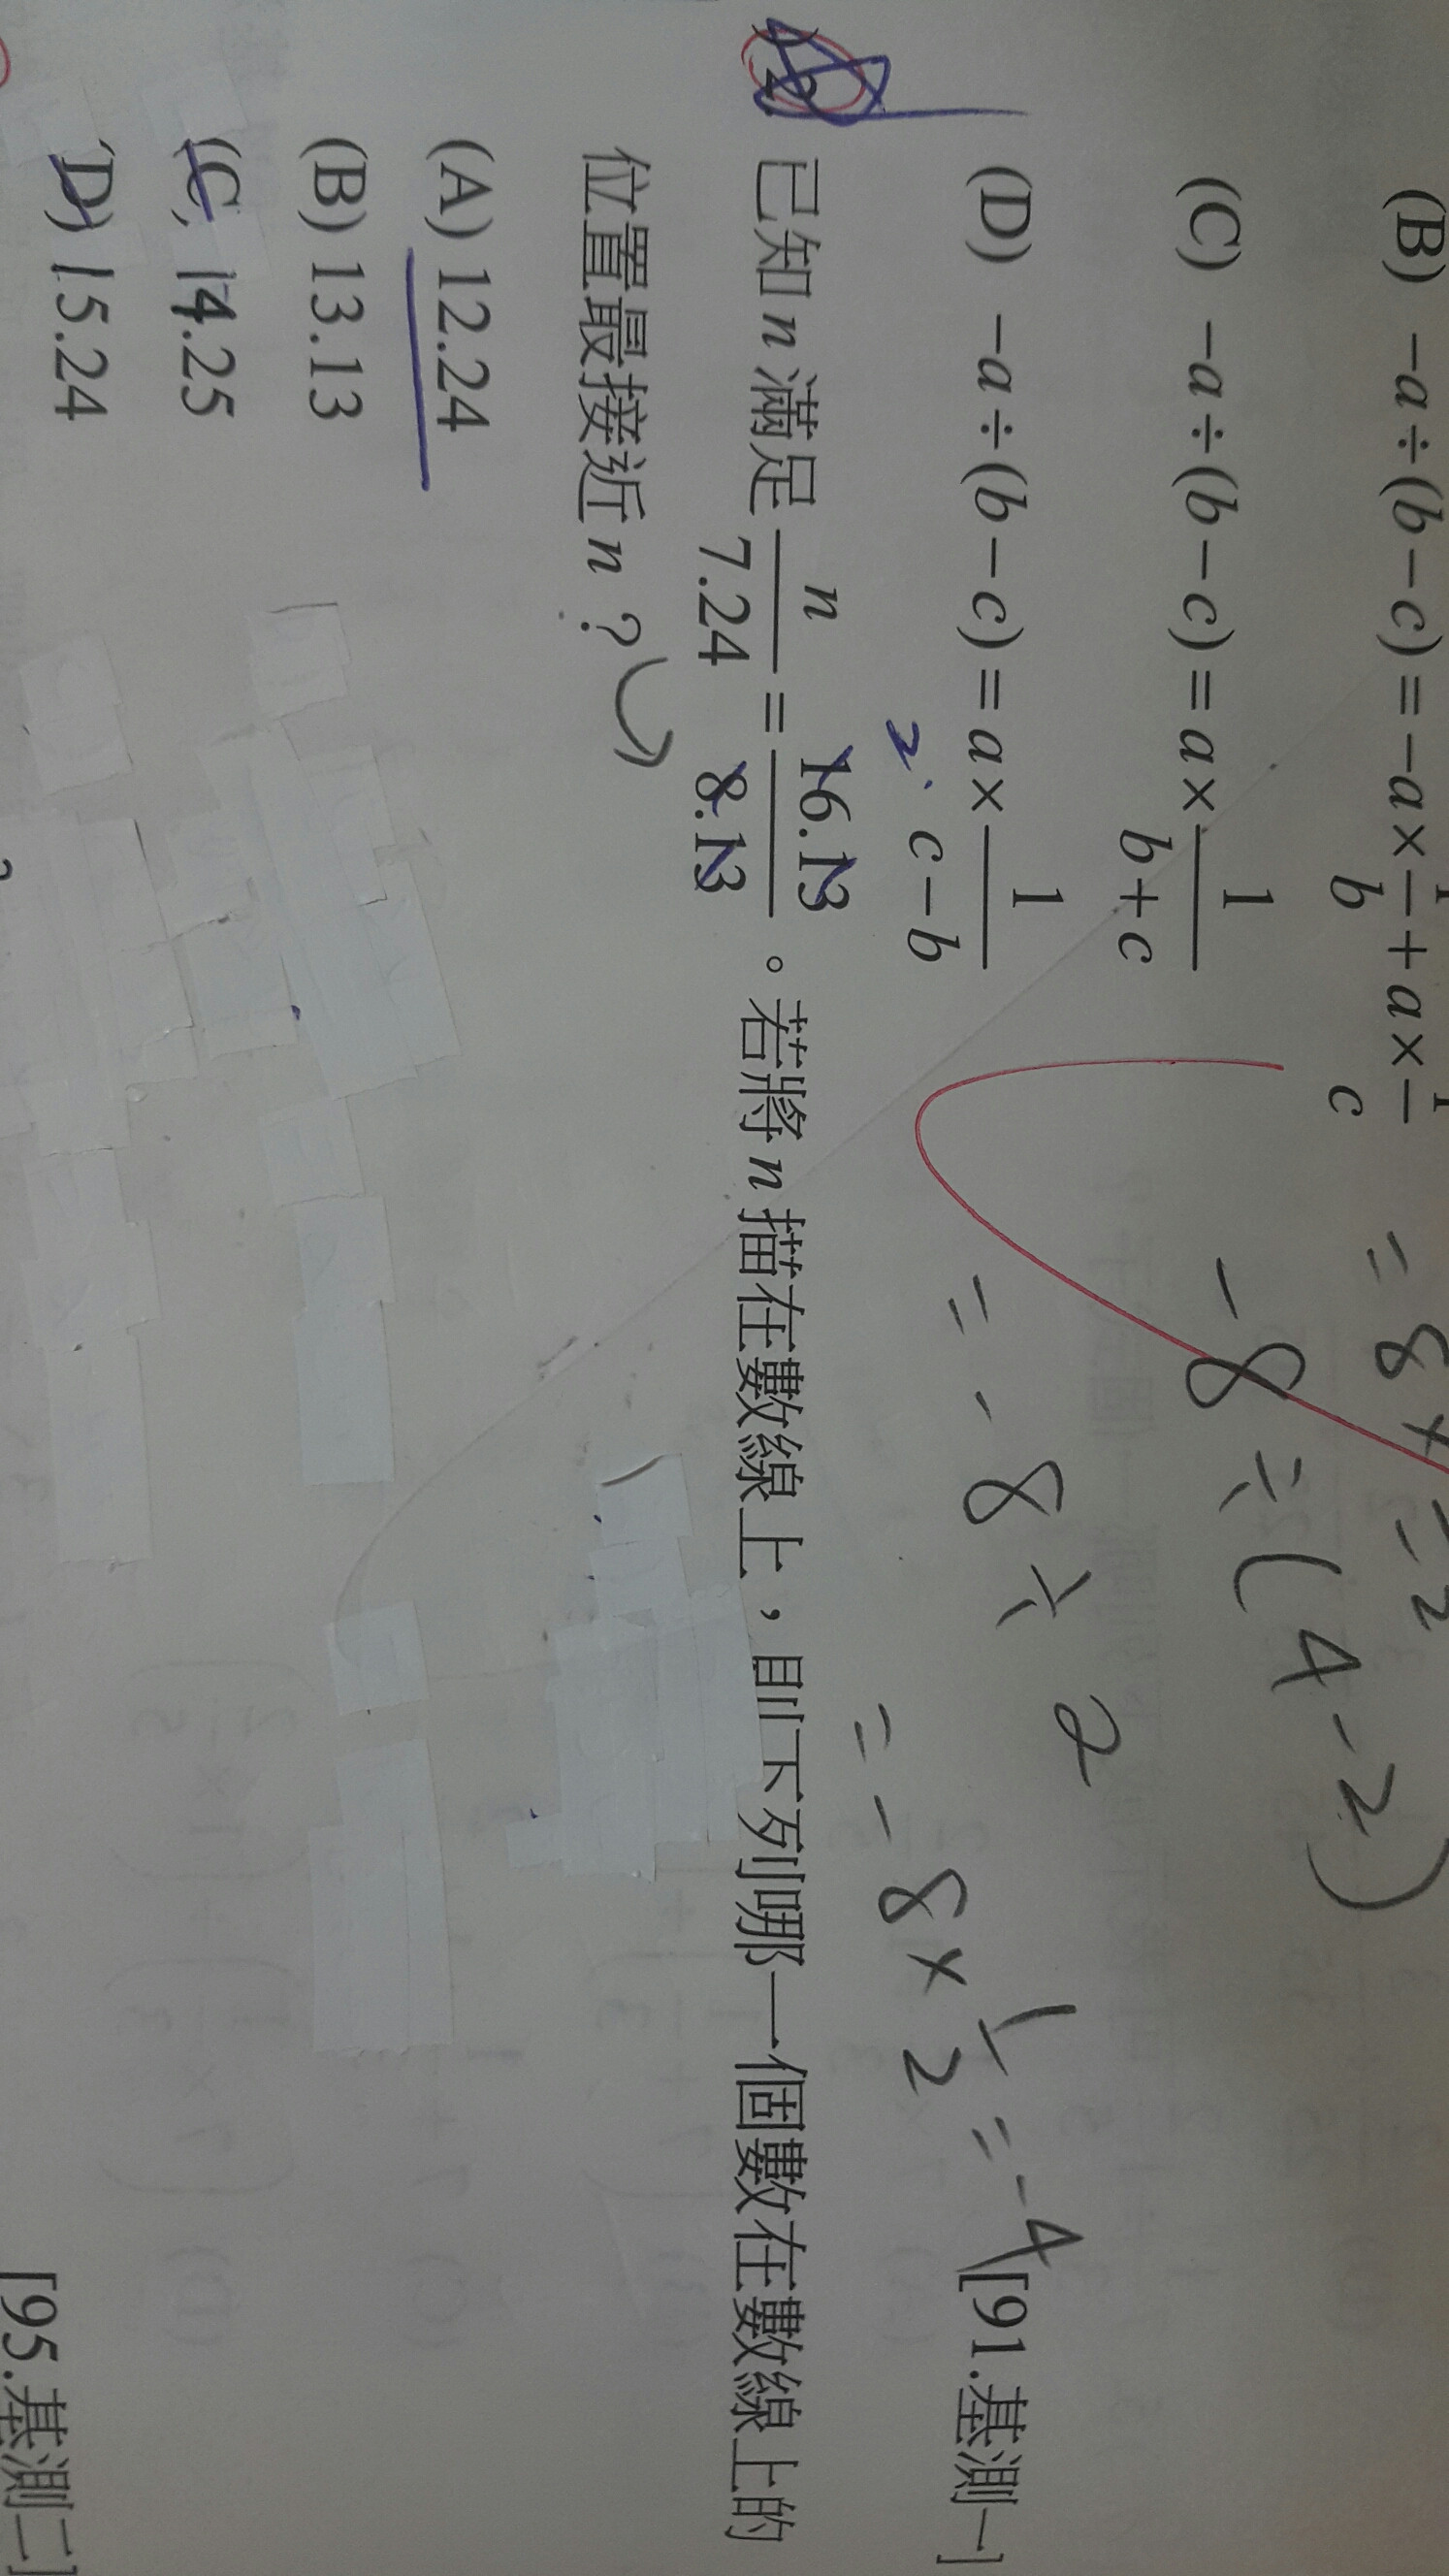 (B) −a÷(b−c)=−a×1/b+a×1/c
=8×
=2
(C) −a÷(b−c)=a×1/(b+c)
−8÷(4−2)
(D) −a÷(b−c)=a×1/(c−b)
=−8÷2
=−8×1/2=−4
[91.基測一]
2.
已知n滿足n/7.24=16.13/8.13。若將n描在數線上，則下列哪一個數在數線上的
位置最接近n？
(A) 12.24
(B) 13.13
(C) 14.25
(D) 15.24
[95.基測二]